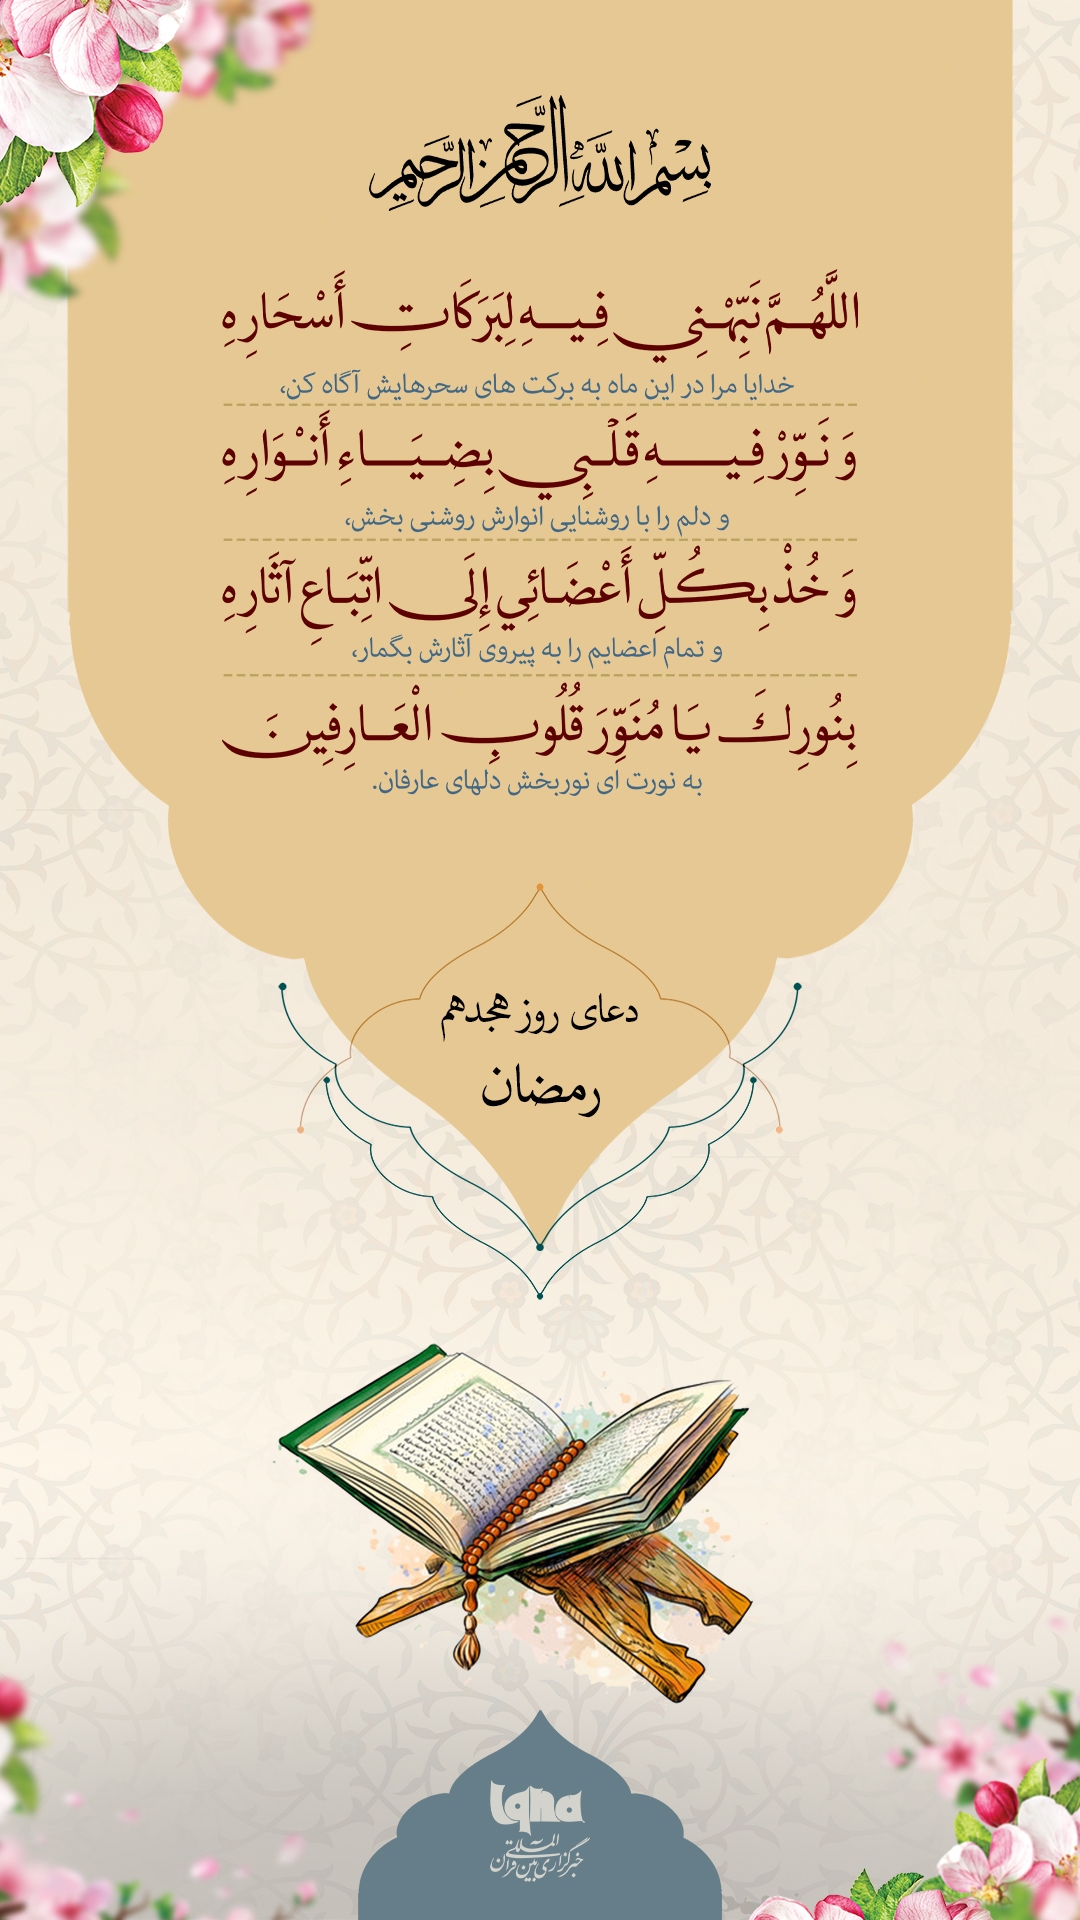 بِسْمِ اللَّهِ الرَّحْمَنِ الرَّحِيمِ
اللَّهُمَّ نَبِّهْنِي فِيهِ لِبَرَكَاتِ أَسْحَارِهِ
خدایا مرا در این ماه به برکت های سحرهایش آگاه کن،
وَ نَوِّرْ فِيهِ قَلْبِي بِضِيَاءِ أَنْوَارِهِ
و دلم را با روشنایی انوارش روشنی بخش،
وَ خُذْ بِكُلِّ أَعْضَائِي إِلَى اتِّبَاعِ آثَارِهِ
و تمام اعضایم را به پیروی آثارش بگمار،
بِنُورِكَ يَا مُنَوِّرَ قُلُوبِ الْعَارِفِينَ
به نورت ای نوربخش دلهای عارفان.
دعای روز هجدهم
رمضان
Iqna
خبرگزاری بین المللی قرآن